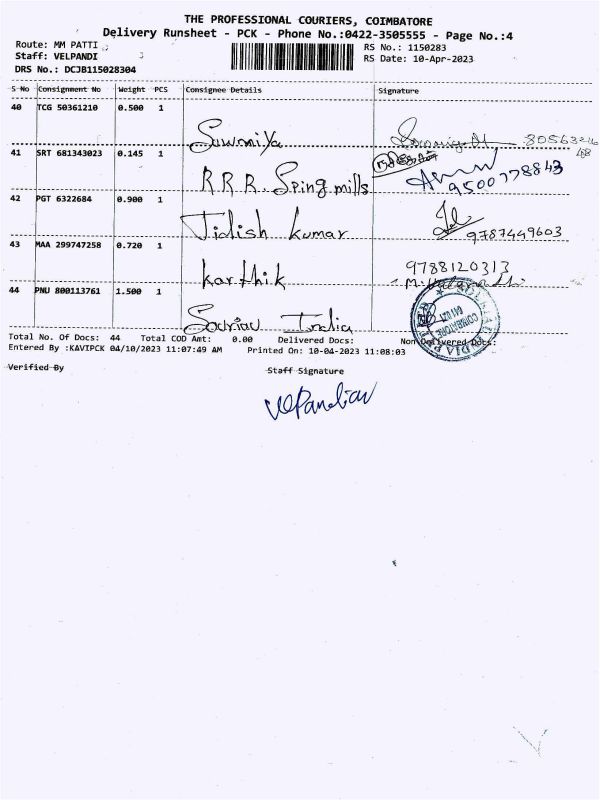 THE PROFESSIONAL COURIERS, COIMBATORE
Delivery Runsheet - PCK - Phone No.:0422-3505555 - Page No.:4
Route: MM PATTI RS No.: 1150283
Staff: VELPANDI RS Date: 10-Apr-2023
DRS No.: DCJB115028304
S No Consignment No Weight PCS Consignee Details Signature
40 TCG 50361210 0.500 1
Sowmiya
41 SRT 681343023 0.145 1
R.R.R. Sping mills 9500778843
42 PGT 6322684 0.900 1
Jidish kumar 9787449603
43 MAA 299747258 0.720 1
karthik 9788120313
44 PNU 800113761 1.500 1
India
COIMBATORE
641 021
Total No. Of Docs: 44 Total COD Amt: 0.00 Delivered Docs: Non Delivered Docs:
Entered By :KAVIPCK 04/10/2023 11:07:49 AM Printed On: 10-04-2023 11:08:03
Verified By Staff Signature
VelPandian